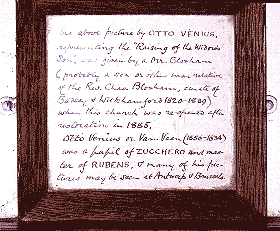 The above picture by OTTO VENIUS,
representing the "Raising of the Widow's
Son", was given by a Mr. Bloxham
(probably a son or other near relative
of the Rev. Chas Bloxham, curate of
& Wickhamford 1820-1850)
when this church was re-opened after
restoration in 1885.
Otto Venius or Van Veen (1556-1634)
was a pupil of ZUCCHERO and mas-
ter of RUBENS, & many of his pic-
tures may be seen at Antwerp & Brussels.